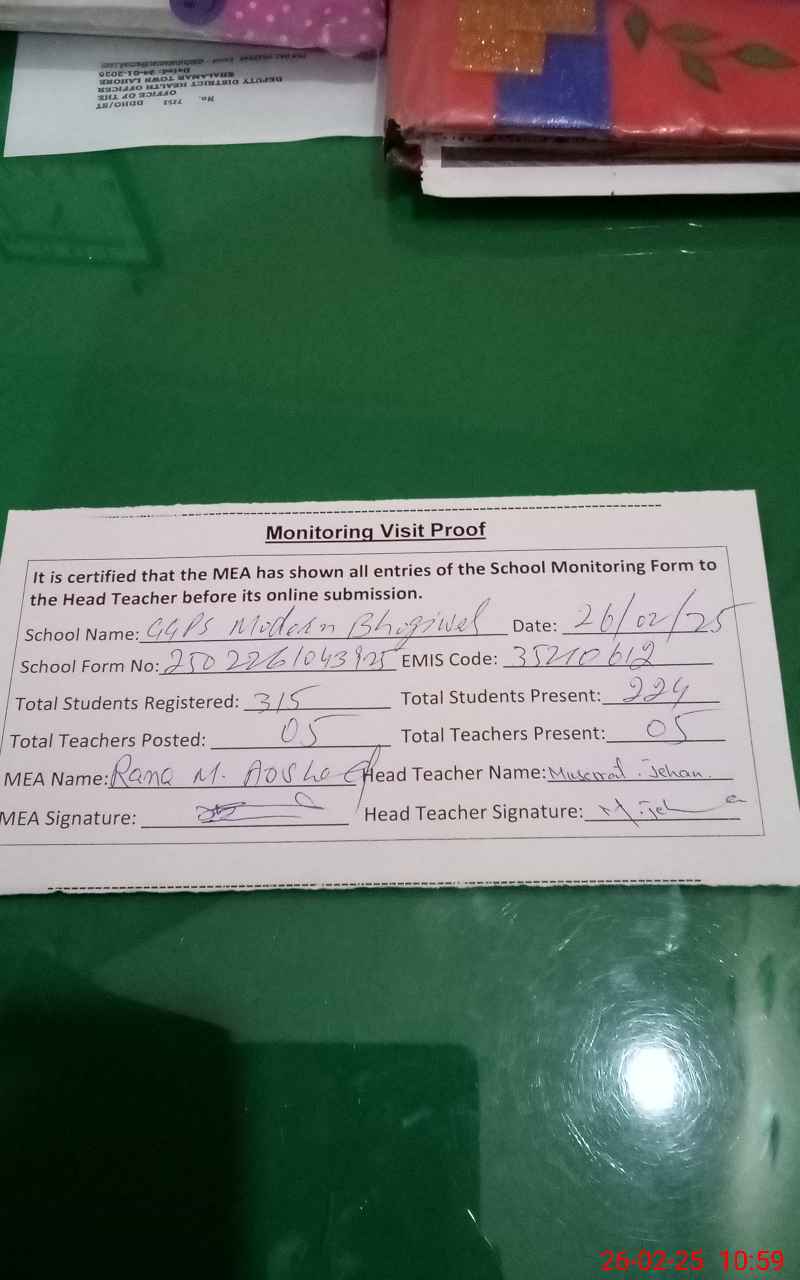 No. 7251 DDHO/ST
OFFICE OF THE
DEPUTY DISTRICT HEALTH OFFICER
SHALAMAR TOWN LAHORE
Monitoring Visit Proof
It is certified that the MEA has shown all entries of the School Monitoring Form to
the Head Teacher before its online submission.
School Name: GGPS Modern Bhogiwal Date: 26/02/25
School Form No: 2502261043925 EMIS Code: 35210612
Total Students Registered: 315 Total Students Present: 224
Total Teachers Posted: 05 Total Teachers Present: 05
MEA Name: Rana M. Head Teacher Name: Musarrat Jehan.
MEA Signature: Head Teacher Signature:
26-02-25 10:59